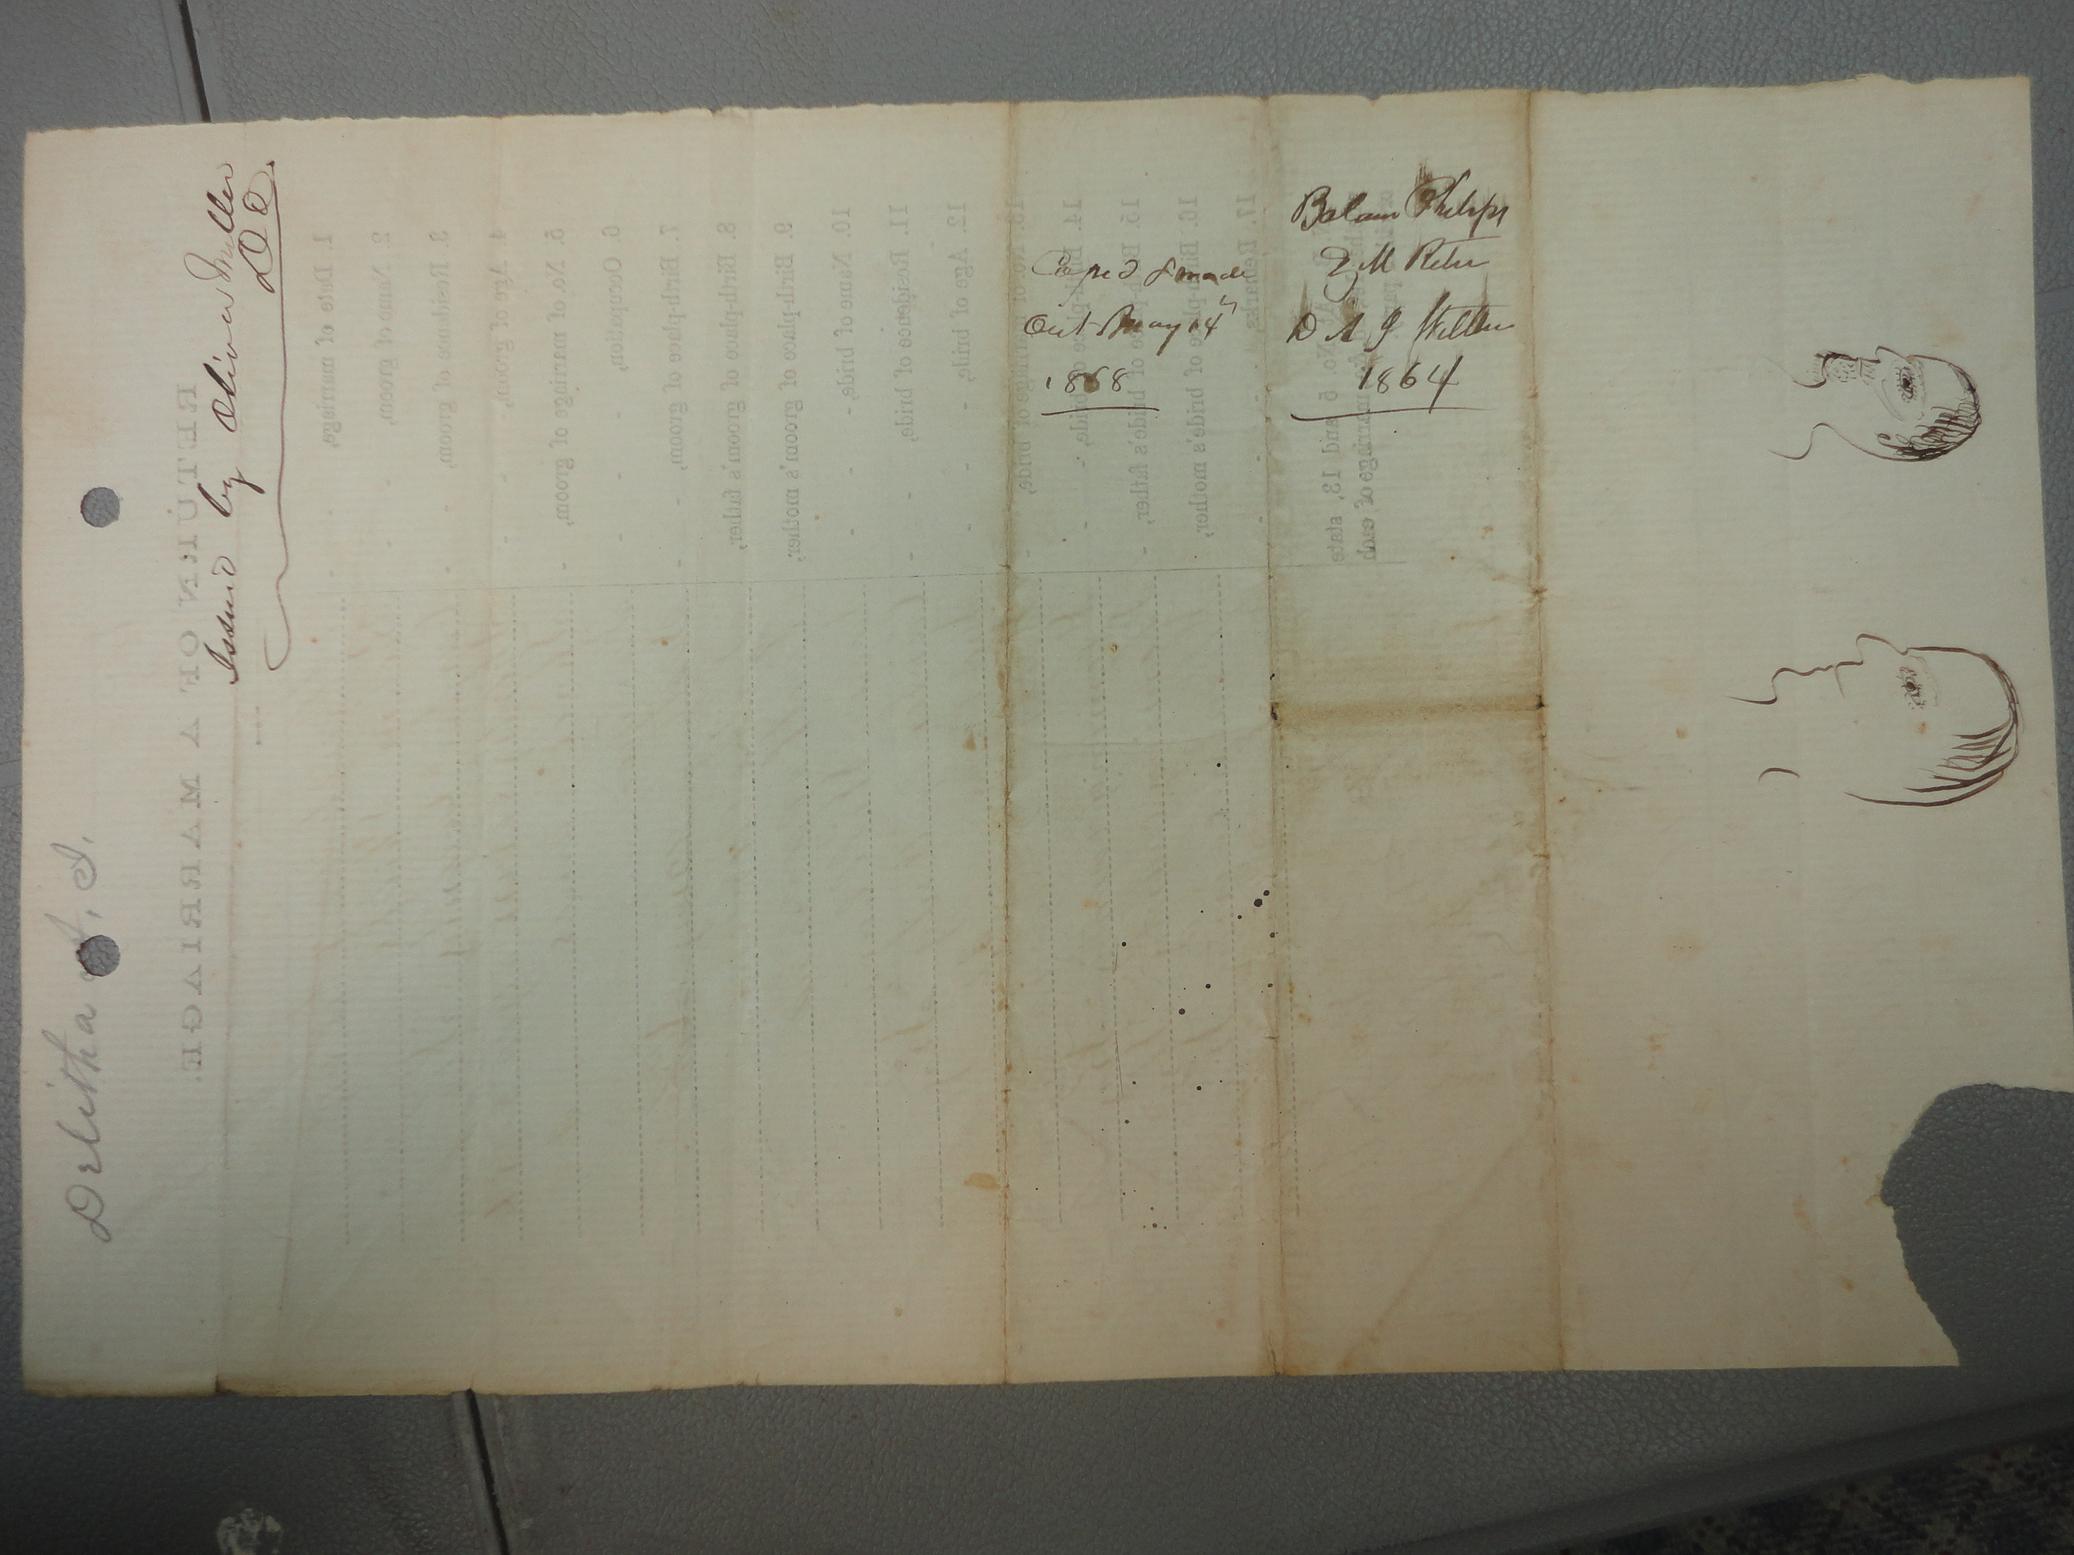 Balam Philips
1864
Cop'd & made
Out May 14"
1868
Issued by Oliver Miller
D. C.
Delitha A. I.
RETURN OF A MARRIAGE.
1. Date of marriage,
2. Name of groom,
3. Residence of groom,
4. Age of groom,
5. No. of marriage of groom,
6. Occupation,
7. Birth-place of groom,
8. Birth-place of groom's father,
9. Birth-place of groom's mother,
10. Name of bride,
11. Residence of bride,
12. Age of bride,
13. No. of marriage of bride,
14. Birth-place of bride,
15. Birth-place of bride's father,
16. Birth-place of bride's mother,
17. Remarks,
No. 5 and 13, state
marriage of each